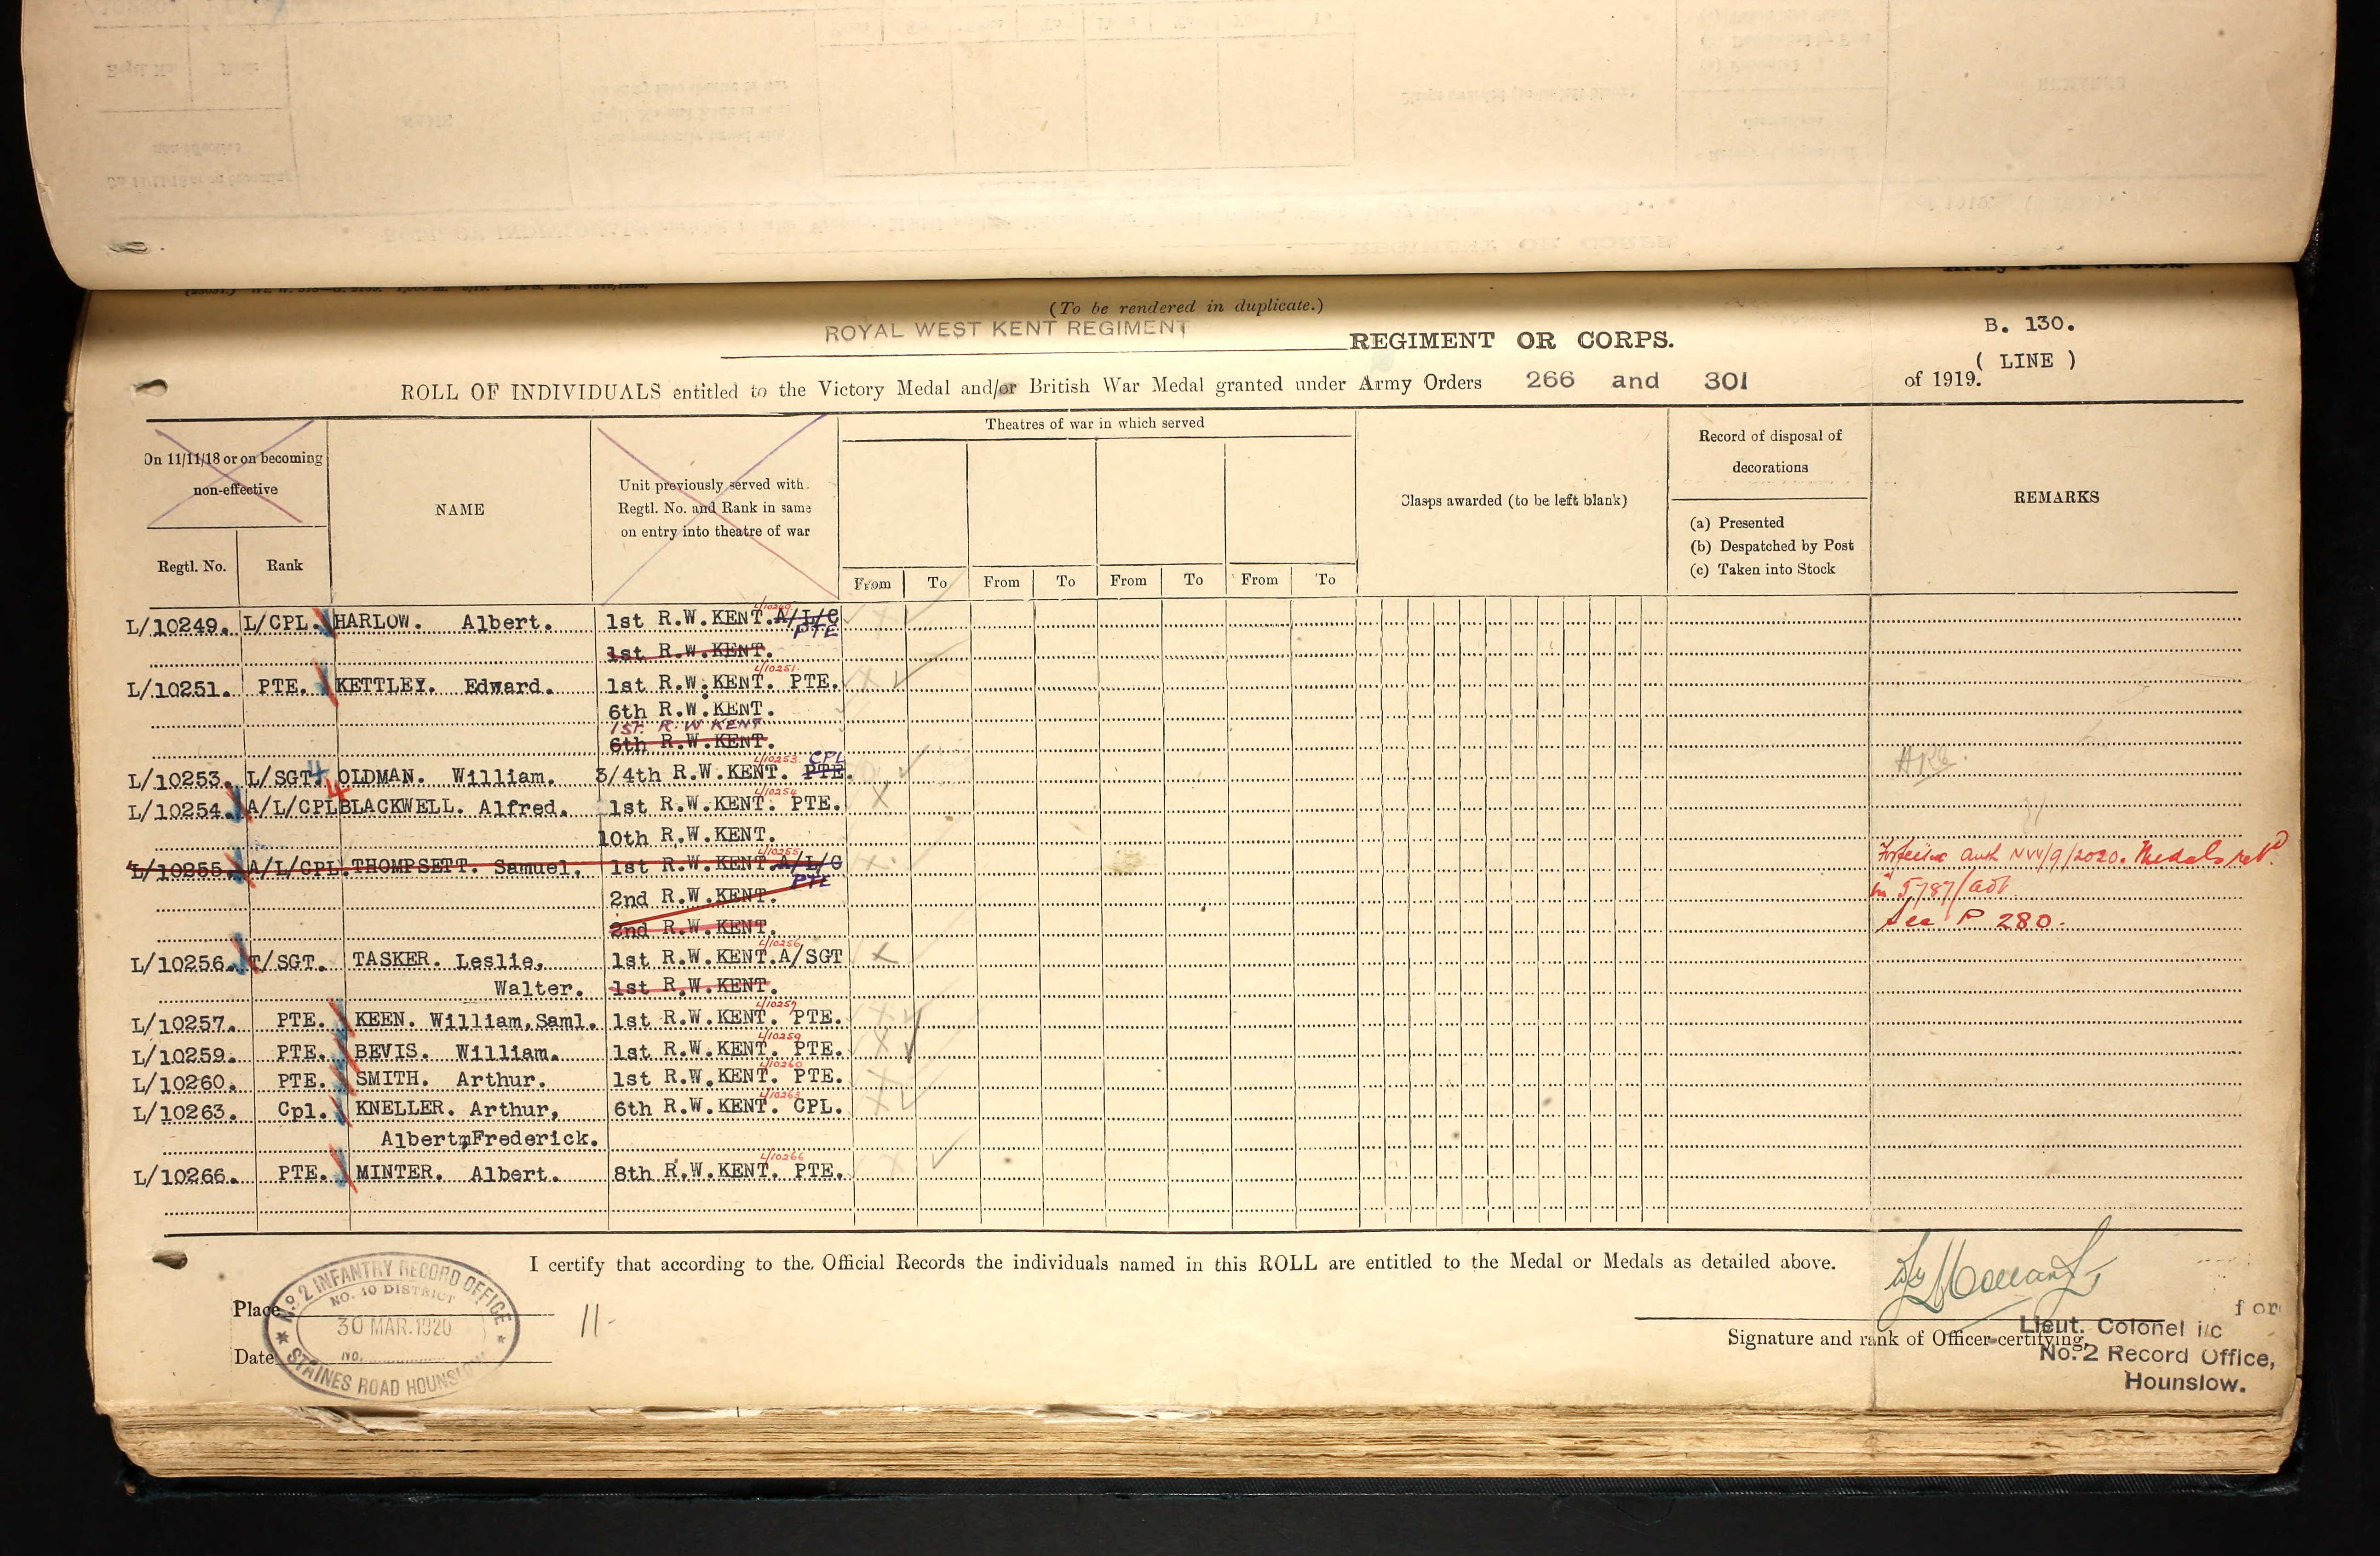 (To be rendered in duplicate.)
ROYAL WEST KENT REGIMENT REGIMENT OR CORPS.
B. 130.
( LINE )
ROLL OF INDIVIDUALS entitled to the Victory Medal and/or British War Medal granted under Army Orders 266 and 301 of 1919.
On 11/11/18 or on becoming non-effective
Regtl. No.
Rank
NAME
Unit previously served with
Regtl. No. and Rank in same
on entry into theatre of war
Theatres of war in which served
From To From To From To From To
Clasps awarded (to be left blank)
Record of disposal of
decorations
(a) Presented
(b) Despatched by Post
(c) Taken into Stock
REMARKS
L/10249. L/CPL. HARLOW. Albert. 1st R.W.KENT. L/10249 A/L/C
PTE
1st R.W.KENT.
L/10251
L/10251. PTE. KETTLEY. Edward. 1st R.W.KENT. PTE.
6th R.W.KENT.
1ST. R.W KENT
6th R.W.KENT.
L/10253 CPL
L/10253. L/SGT. OLDMAN. William. 3/4th R.W.KENT. PTE.
L/10254
L/10254. A/L/CPL BLACKWELL. Alfred. 1st R.W.KENT. PTE.
10th R.W.KENT.
L/10255
L/10255. A/L/CPL. THOMPSETT. Samuel. 1st R.W.KENT. A/L/C
PTE
Medals
2nd R.W.KENT.
2nd R.W.KENT.
See P 280.
L/10256
L/10256. T/SGT. TASKER. Leslie, 1st R.W.KENT. A/SGT
Walter. 1st R.W.KENT.
L/10257
L/10257. PTE. KEEN. William, Saml. 1st R.W.KENT. PTE.
L/10259
L/10259. PTE. BEVIS. William. 1st R.W.KENT. PTE.
L/10260
L/10260. PTE. SMITH. Arthur. 1st R.W.KENT. PTE.
L/10263
L/10263. Cpl. KNELLER. Arthur, 6th R.W.KENT. CPL.
Albert, Frederick.
L/10266
L/10266. PTE. MINTER. Albert. 8th R.W.KENT. PTE.
I certify that according to the Official Records the individuals named in this ROLL are entitled to the Medal or Medals as detailed above.
Place
Date
No. 2 INFANTRY RECORD OFFICE
NO. 10 DISTRICT
30 MAR. 1920
No.
STAINES ROAD HOUNSLOW
11.
for
Signature and rank of Officer certifying.
Lieut. Colonel i/c
No. 2 Record Office,
Hounslow.